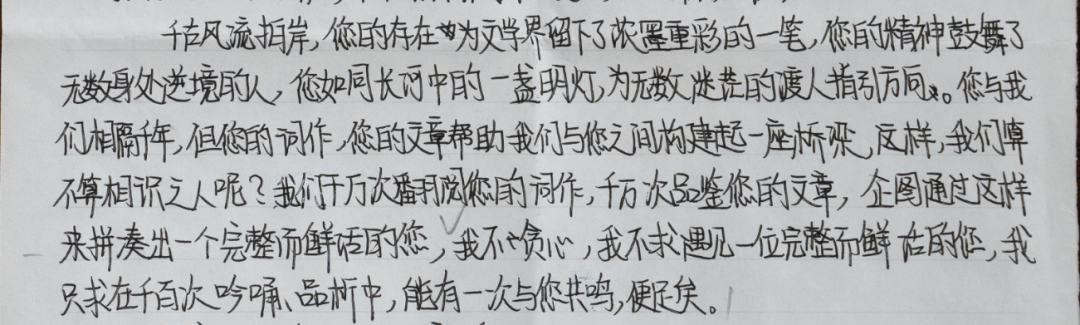 千古风流拍岸，您的存在为文学界留下了浓墨重彩的一笔，您的精神鼓舞了
无数身处逆境的人，您如同长河中的一盏明灯，为无数迷茫的渡人指引方向。您与我
们相隔千年，但您的词作，您的文章帮助我们与您之间构建起一座桥梁，这样，我们算
不算相识之人呢？我们千万次翻阅您的词作，千万次品鉴您的文章，企图通过这样
来拼凑出一个完整而鲜活的您，我不贪心，我不求遇见一位完整而鲜活的您，我
只求在千百次吟诵、品析中，能有一次与您共鸣，便足矣。